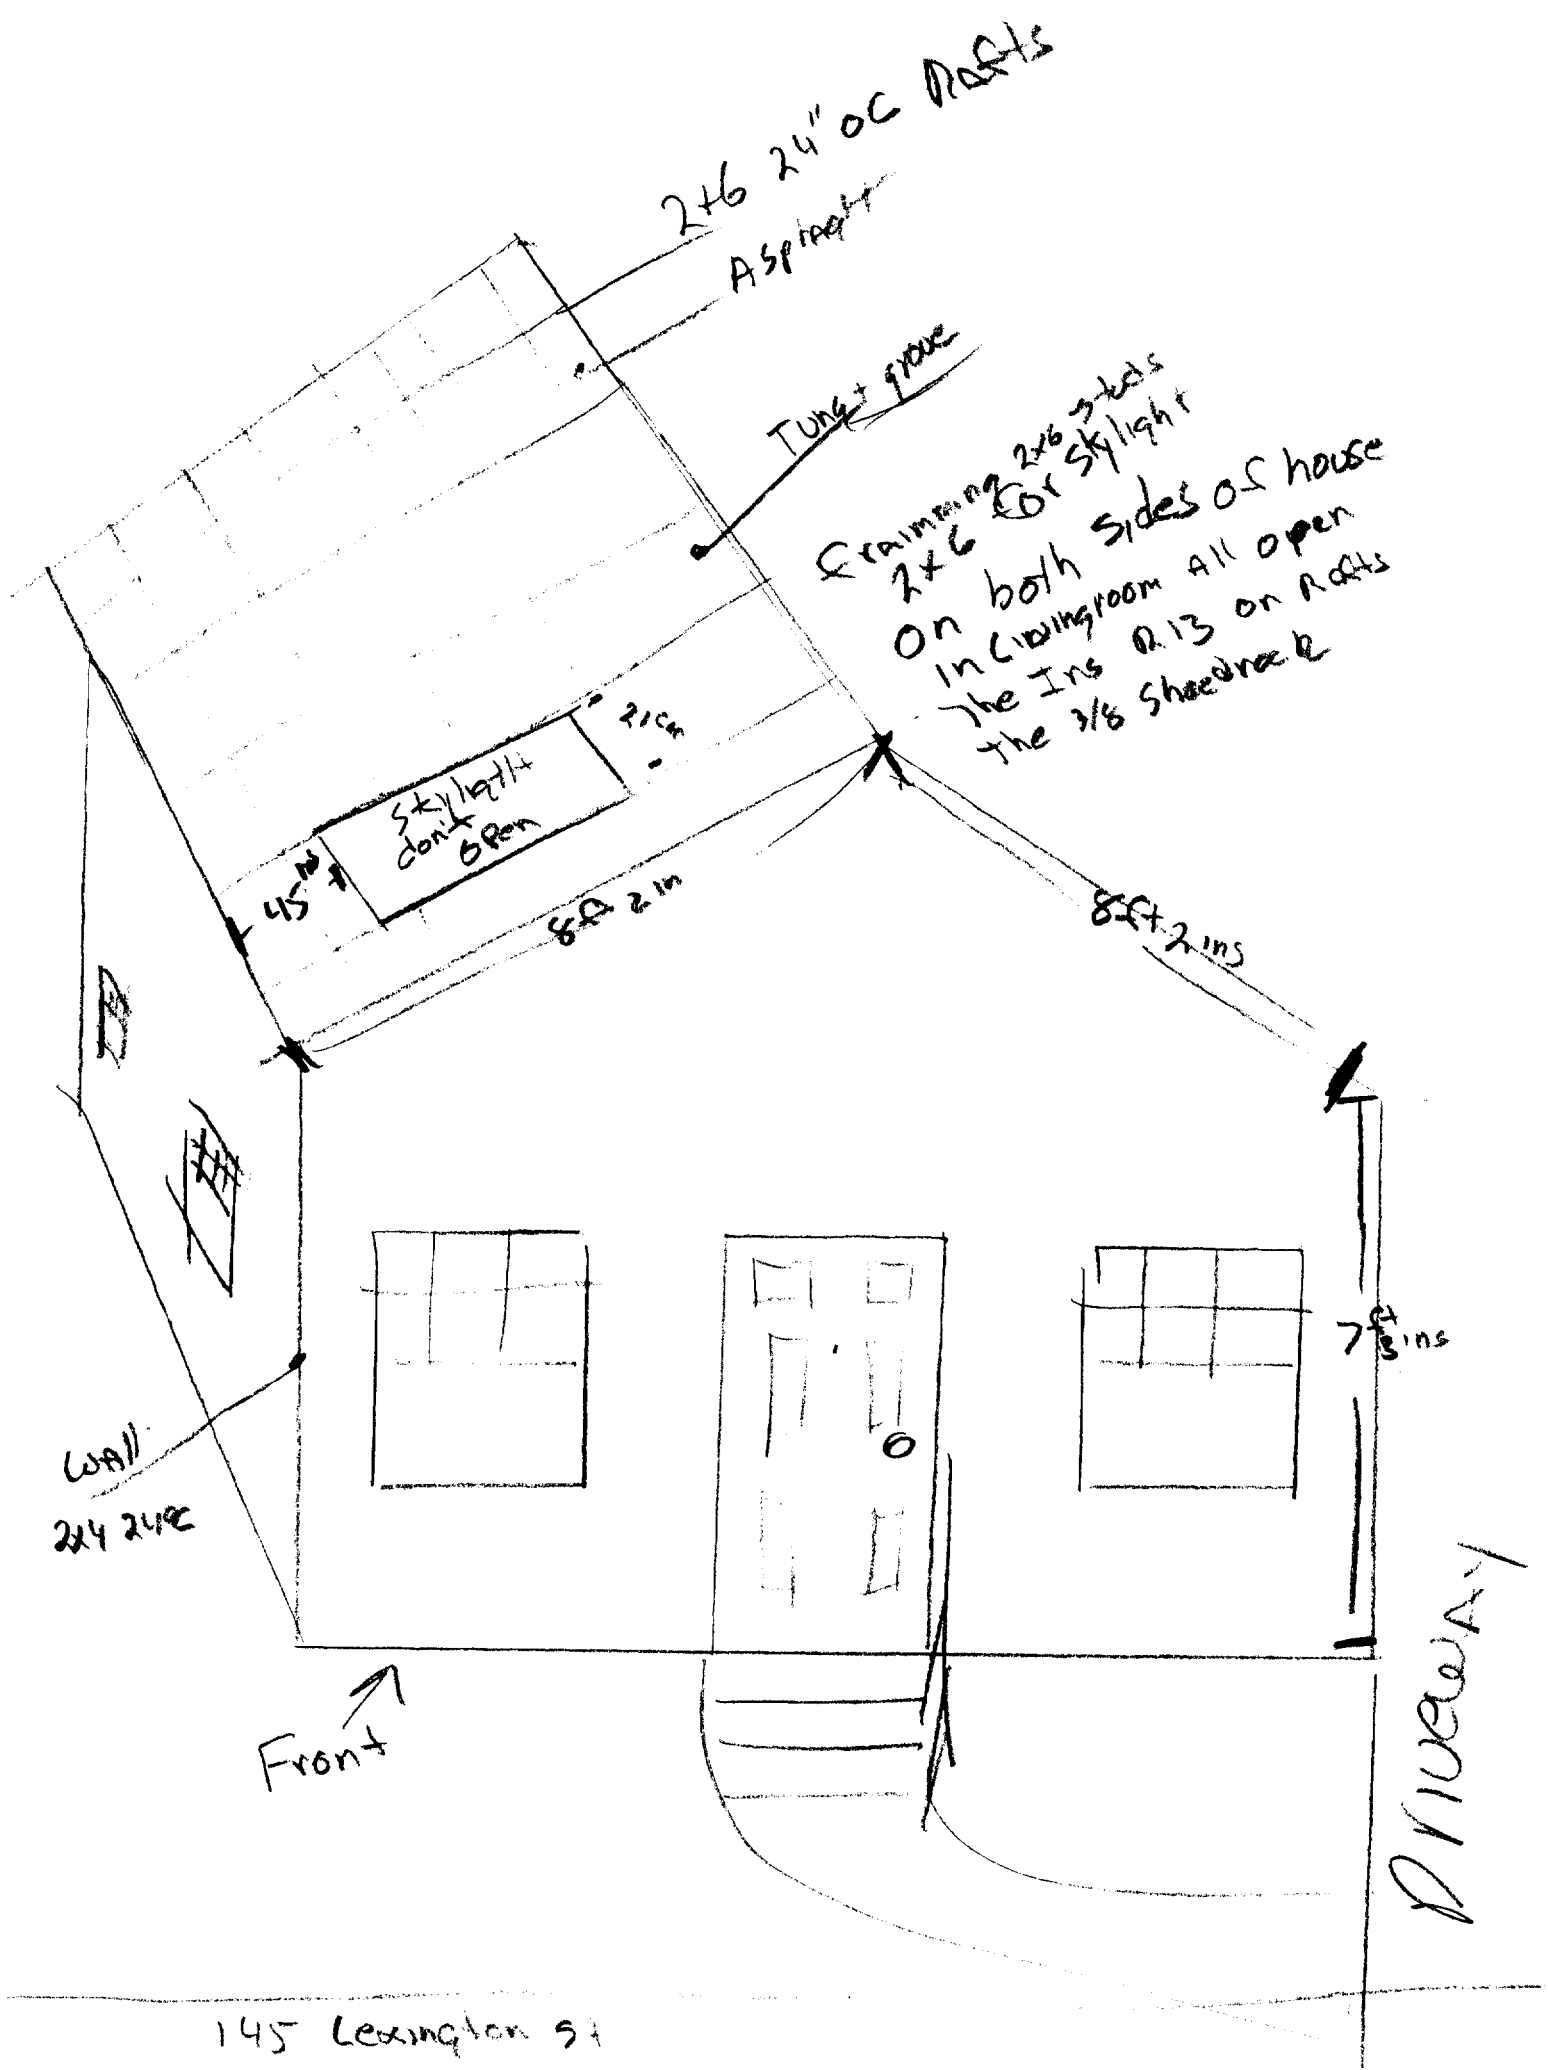 2+6 24" OC Rafts
Asphaght
Tung + grove
fraimming 2x6 studs
2x6 for skylight
on both sides of house
in Livingroom All open
The Ins R13 on Rafts
the 3/8 Sheedrock
21
Skylight
don't
open
45
8ft 2 in
8ft 2 ins
7 ft 3 ins
Wall
2x4 24oc
Front
Driveway
145 Lexington st